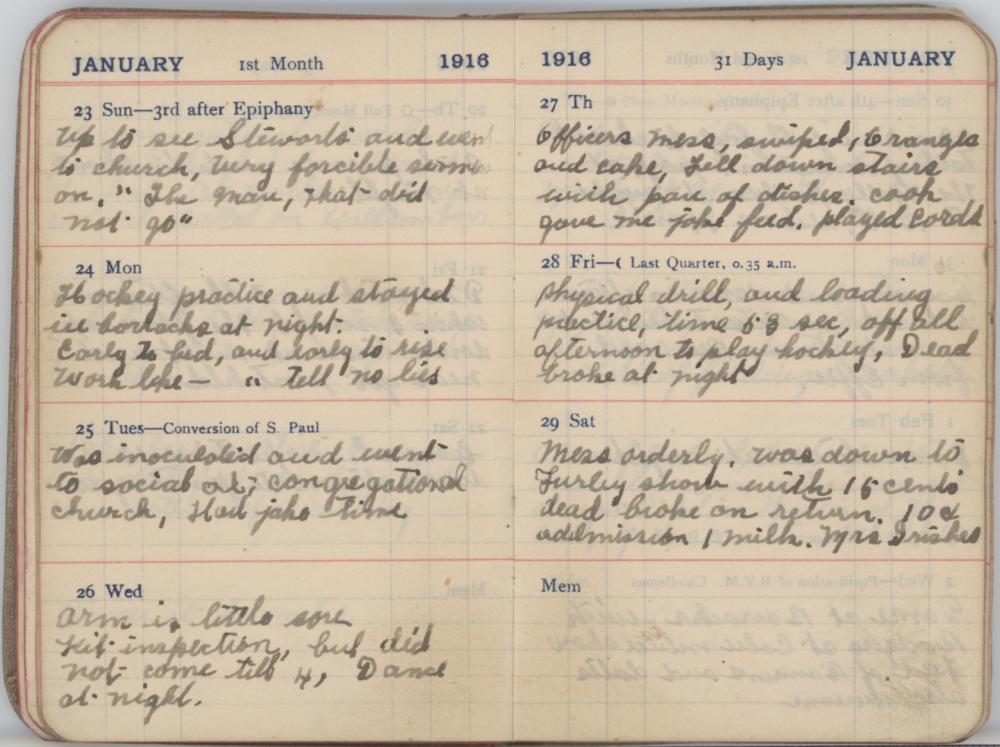 JANUARY 1st Month 1916
23 Sun—3rd after Epiphany
Up to see Stewarts and went
to church, very forcible serm
on, "The man, that did
not go"
24 Mon
Hockey practice and stayed
in barracks at night.
Early to bed, and early to rise
Work like — " tell no lies
25 Tues—Conversion of S. Paul
Was inoculated and went
to social at; congregational
church, Had jake time
26 Wed
arm is little sore
Kit inspection, but did
not come till 4, Dance
at night.
1916 31 Days JANUARY
27 Th
Officers mess, swiped, 6 ranges
and cake, Fell down stairs
with pan of dishes. cook
gave me jake feed. played cards
28 Fri—☾ Last Quarter, 0.35 a.m.
Physical drill, and loading
practice, time 53 sec, off all
afternoon to play hockey, Dead
broke at night
29 Sat
Mess orderly. was down to
show with 15 cents
dead broke on return. 10¢
addmission 1 milk. Mrs Irishes
Mem